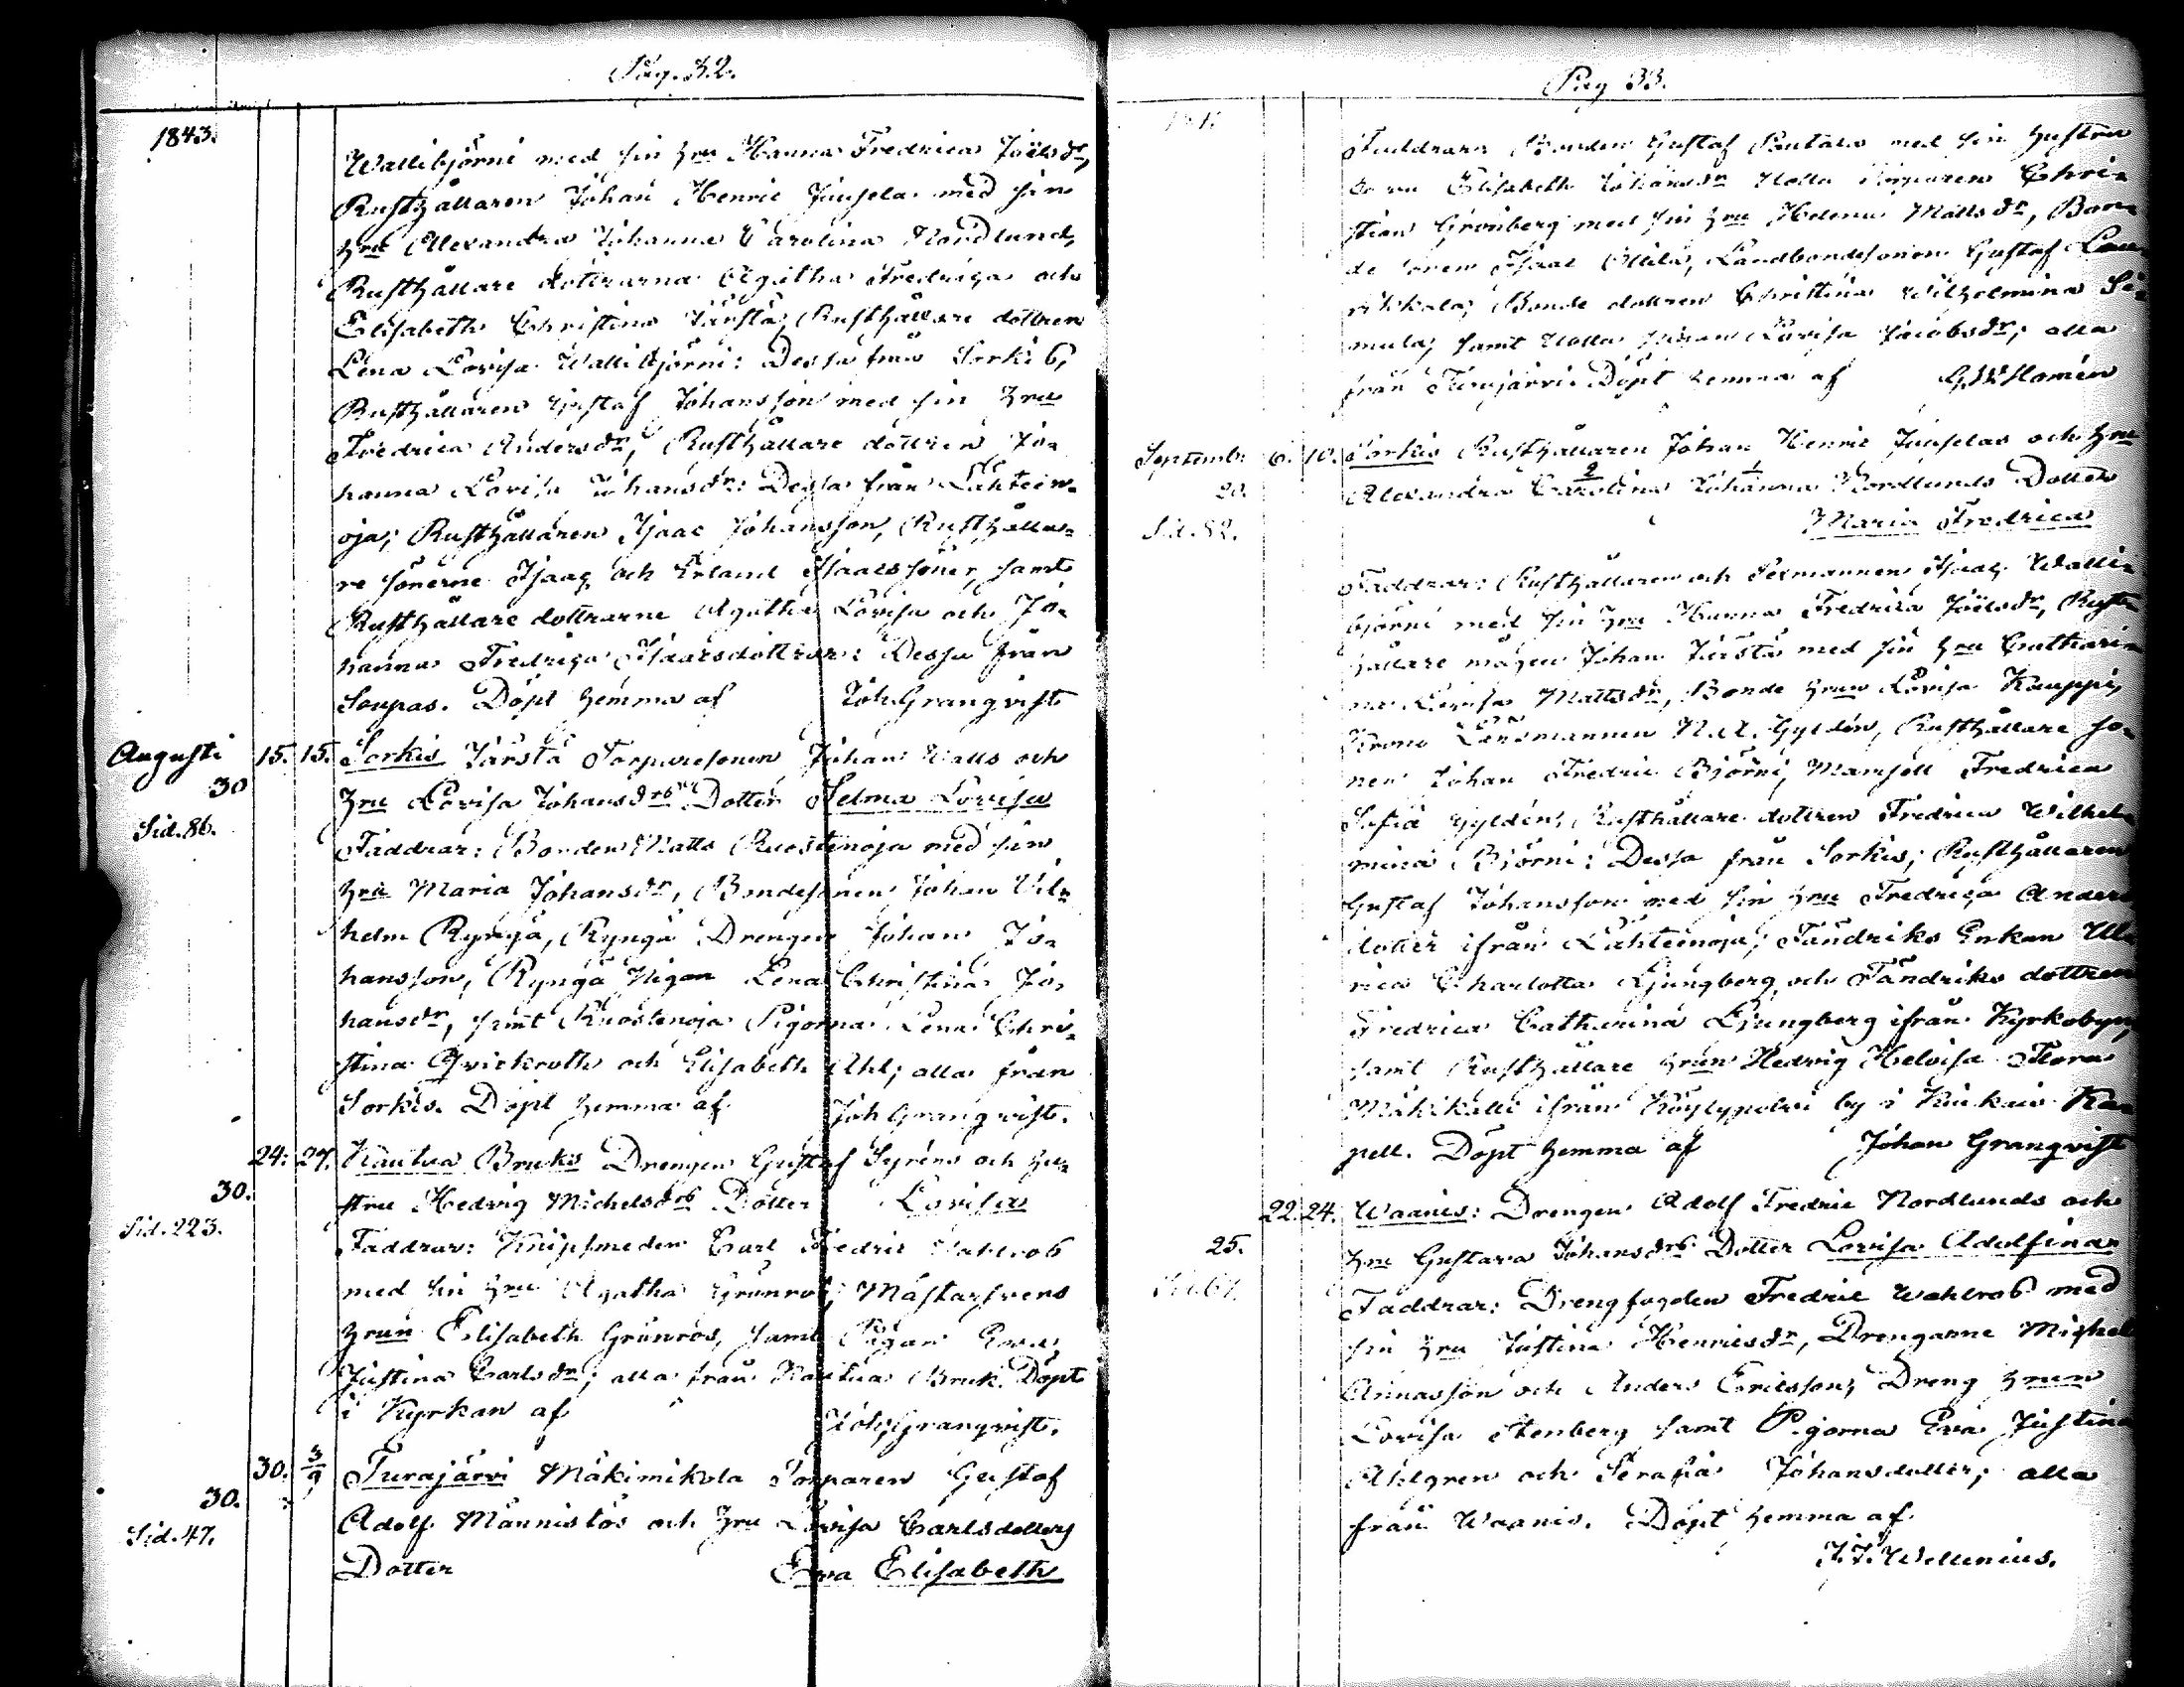 Pag. 32.
1843.
Wallibjörni med sin hru Hanna Fredrica Joelsdr,
Rusthållaren Johan Henric Juusela med sin
hru Allexandra Johanna Carolina Nordlund,
Rusthållare dottrarna Agatha Fredrica och
Elisabeth Christina Järstä, Rusthållare dottren
Lena Lovisa Wallibjörni: Dessa från Sorkis,
Rusthållaren Gustaf Johansson med sin hru
Fredrica Andersdr, Rusthållare dottren Jo-
hanna Lovisa Johansdr: Dessa från Lähtein-
oja; Rusthållaren Isaac Johansson, Rusthålla-
re sönerne Isaac och Erland Isaacssöner, samt
Rusthållare dottrarne Agatha Lovisa och Jo-
hanna Fredrica Isaacsdottrar: Dessa från
Soupas. Döpt hemma af Joh. Granqvist
Augusti 15. 15. Sorkis Järstä Torparesonen Johan Walls och
30 hru Lovisa Johansdrs Dotter Selma Lovisa
Sid. 86.
Faddrar: Bonden Matts Ruostenoja med sin
hru Maria Johansdr, Bondesonen Johan Vil-
helm Ryngä, Ryngä Drengen Johan Jo-
hansson, Ryngä Pigan Lena Christina Jo-
hansdr, samt Ruostenoja Pigorna Lena Chri-
stina Qvickroth och Elisabeth Ahl; alla från
Sorkis. Döpt hemma af Joh Granqvist.
24. 27. Kautua Bruks Drengen Gustaf Syréns och hu-
30. stru Hedvig Michelsdrs Dotter Lovisa
Sid. 223.
Faddrar: Knipsmeden Carl Fredric Wahlros
med sin hru Agatha Grönros, Mästarsvens
hrun Elisabeth Grönros, samt Pigan Eva
Justina Carlsdr; alla från Kautua Bruk. Döpt
i Kyrkan af Joh. Granqvist.
30. 3/9 Turajärvi Mäkimikola Torparen Gustaf
30. Adolf Männistös och hru Lovisa Carlsdotters
Sid. 47.
Dotter Eva Elisabeth
Pag 33.
Faddrar: Bonden Gustaf Rautala med sin hustru
Elisabeth Johansdr Torparen Chri-
stian Grönberg med sin hru Helena Mattsdr, Bon-
de sonen Isaac Ollila, Landbondesonen Gustaf Lau-
rikkala, Bonde dottren Christina Wilhelmina Si-
mula, samt Lovisa Jacobsdr; alla
från Turajärvi. Döpt hemma af G. W. Homén
Septemb. 6. 10. Sorkis Rusthållaren Johan Henric Juuselas och hru
20. Alexandra Carolina Johanna Nordlunds Dotter
2 1
Sid. 82. Maria Fredrica
Faddrar: Rusthållaren och Sexmannen Isaac Walli-
björni med sin hru Hanna Fredrica Joelsdr, Rust-
hållare mågen Johan Järstä med sin hru Cathari-
na Lovisa Mattsdr, Bonde hrun Lovisa Kauppi,
Krono Länsmannen N. A. Gyldén, Rusthållare so-
nen Johan Fredric Björni, Mamsell Fredrica
Sofia Gyldén, Rusthållare dottren Fredrica Wilhel-
mina Björni: Dessa från Sorkis; Rusthållaren
Gustaf Johansson med sin hru Fredrica Anders
dotter ifrån Lähteinoja; Fändriks Enkan Ul-
rica Charlotta Ljungberg och Fändriks dottren
Fredrica Catharina Ljungberg ifrån Kyrkobyn,
samt Rusthållare hrun Hedvig Helvisa Flora
Mäkikalli ifrån Köylypolvi by i Kiukais Ka-
pell. Döpt hemma af Johan Granqvist
22. 24. Waanis: Drengen Adolf Fredric Nordlunds och
25. hru Gustava Johansdrs Dotter Lovisa Adolfina
Faddrar: Drengfogden Fredric Wahlros med
sin hru Justina Henricsdr, Drengarne Michel
Annasson och Anders Ericsson, Dreng hrun
Lovisa Stenberg samt Pigorna Eva Justina
Ahlgren och Serafia Johansdotter; alla
från Waanis. Döpt hemma af
J. J. Wellenius.